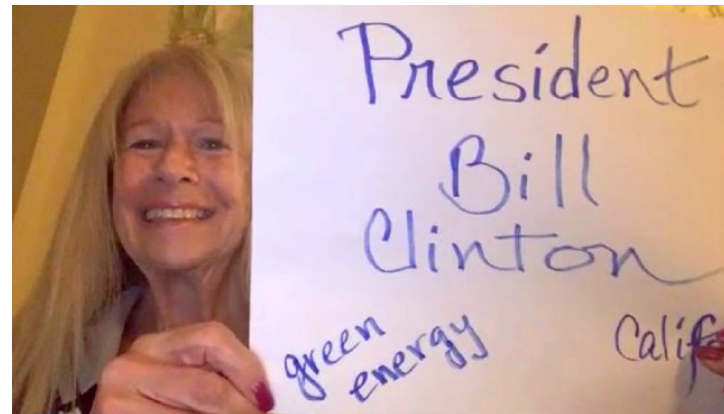 President
Bill
Clinton
green
energy
Calif